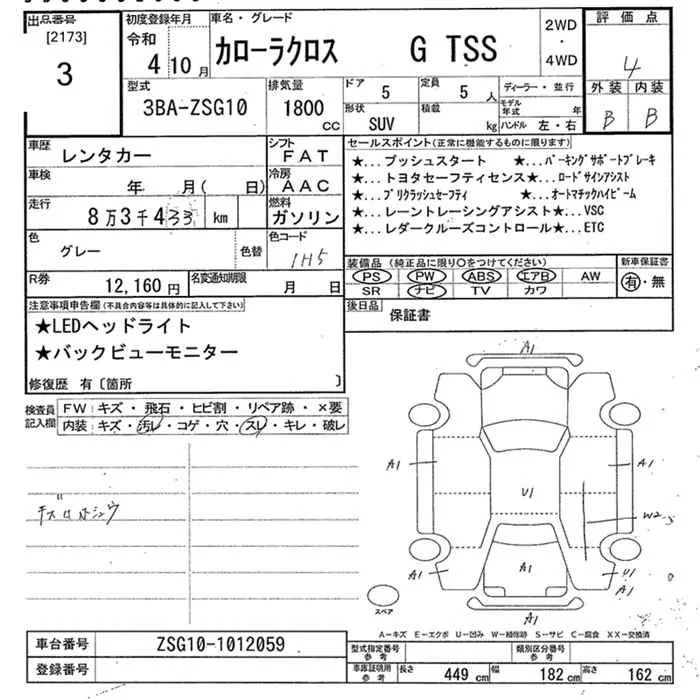 出品番号
[2173]
3
初度登録年月
令和
4 10月
車名・グレード
カローラクロス G TSS
2WD
・
4WD
評価点
4
外装 内装
B B
型式
3BA-ZSG10
排気量
1800 cc
ドア 5
定員 5 人
形状 SUV
積載 kg
ディーラー・並行
モデル年式 年
ハンドル 左・右
車歴
レンタカー
シフト
FAT
車検
年 月( 日)
冷房
AAC
走行
8万3千433 km
燃料
ガソリン
色
グレー
色替
色コード
1H5
R券
12,160円
名変通知期限
月 日
セールスポイント(正常に機能するものに限ります)
★...プッシュスタート ★...パーキングサポートブレーキ
★...トヨタセーフティセンス★...ロードサインアシスト
★...プリクラッシュセーフティ ★...オートマチックハイビーム
★...レーントレーシングアシスト★...VSC
★...レダークルーズコントロール★...ETC
装備品(純正品に限り〇をつけてください)
新車保証書
PS PW ABS エアB AW
SR ナビ TV カワ
有・無
後日品
保証書
注意事項申告欄(不具合内容等は具体的に記入して下さい)
★LEDヘッドライト
★バックビューモニター
修復歴 有〔箇所 〕
検査員記入欄
FW キズ・飛石・ヒビ割・リペア跡・×要
内装 キズ・汚レ・コゲ・穴・スレ・キレ・破レ
A1
A1
A1
U1
W2-S
A1
A1
A1
U1
A1
A1
スペア
A-キズ E-エクボ U-凹み W-補修跡 S-サビ C-腐食 XX-交換済
車台番号
ZSG10-1012059
登録番号
型式指定番号参考
類別区分番号参考
車庫証明用参考
長さ 449 cm
幅 182 cm
高さ 162 cm